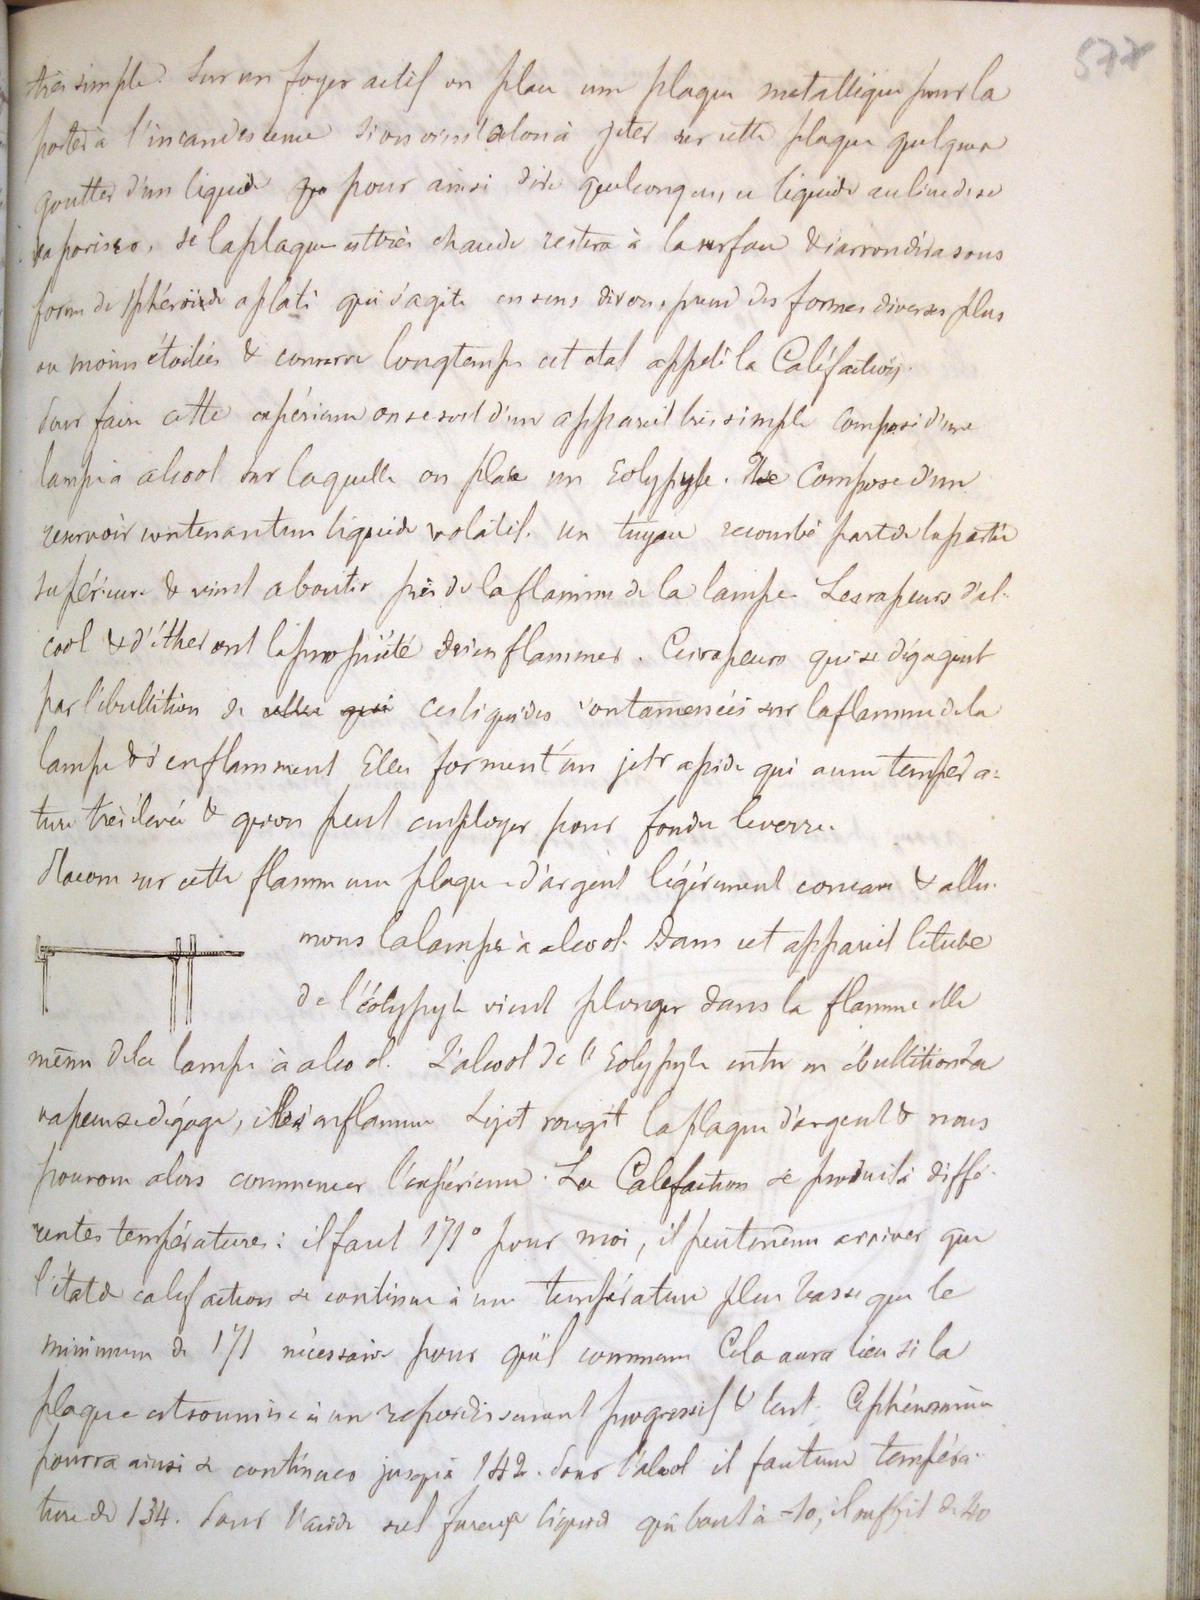 577
très simple. Sur un foyer actif on place une plaque metallique pour la
porter à l'incandescence Si on vient alors à jeter sur cette plaque quelques
goutter d'un liquide pour ainsi dire quelconque, ce liquide au lieu de se
vaporiser, se la plaque est très chaude restera à la surface & s'arrondira sous
forme de sphéroïde aplati qui s'agite en sens divers, prend des formes diverses plus
ou moins étoilées & conserve longtemps cet etat appelé la Caléfaction.
Pour faire cette expérience on se sert d'un appareil très simple composé d'une
lampe à alcool sur laquelle on place un Eolypyle. Il se compose d'un
reservoir contenant un liquide volatil. Un tuyau recourbé part de la partie
supérieure & vient aboutir près de la flamme de la lampe. Les vapeurs d'al-
cool & d'éther ont la propriété de s'enflammer. Ces vapeurs qui se dégagent
par l'ébullition de celles qui ces liquides sont amenées sur la flamme de la
lampe & s'enflamment Elles forment un jet rapide qui a une tempéra=
ture très élevée & qu'on peut employer pour fondre le verre.
Placons sur cette flamme une plaque d'argent légérement concave & allu-
mons la lampe à alcool. Dans cet appareil le tube
de l'éolypyle vient plonger dans la flamme elle
même de la lampe à alcool. L'alcool de l'Eolypyle entre en ébullition La
vapeur se dégage, s'enflamme Le jet rougit la plaque d'argent & nous
pourrons alors commencer l'expérience. La Calefaction se produit à diffé-
rentes températures: il faut 171° pour moi, il peut même arriver que
l'état de calefaction se continue à une température plus basse que le
minimum de 171 nécessaire pour qu'il commence Cela aura lieu si la
plaque est soumise à un refroidissement progressif & lent. Ce phénomène
pourra ainsi se continuer jusqu'à 142. Pour l'alcool il faut une tempéra-
ture de 134. Pour l'acide sulfureux liquide qui bout à -10, il suffit de 40